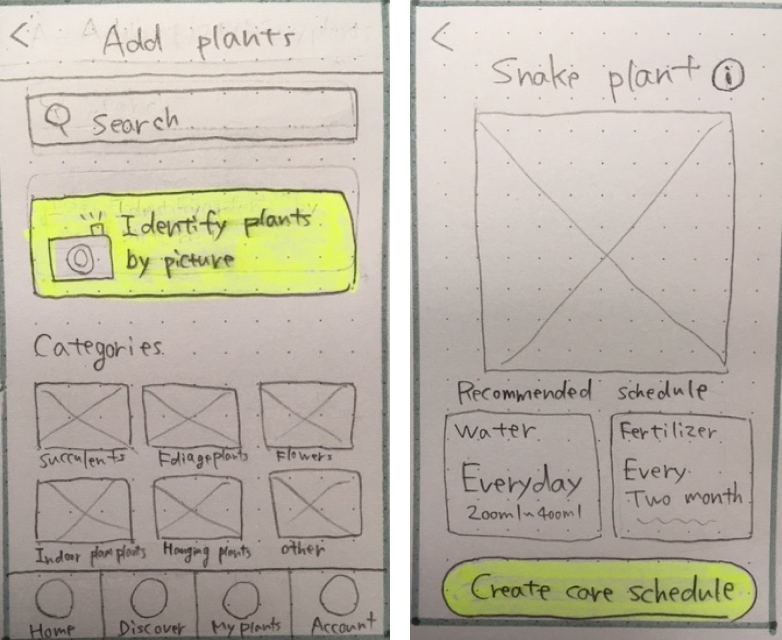 < Add plants
Search
Identify plants
by picture
Categories
Succulents Foliage plants Flowers
Indoor plants Hanging plants other
Home Discover My plants Account
<
Snake plant i
Recommended schedule
Water
Everyday
200ml~400ml
Fertilizer
Every
Two month
Create care schedule